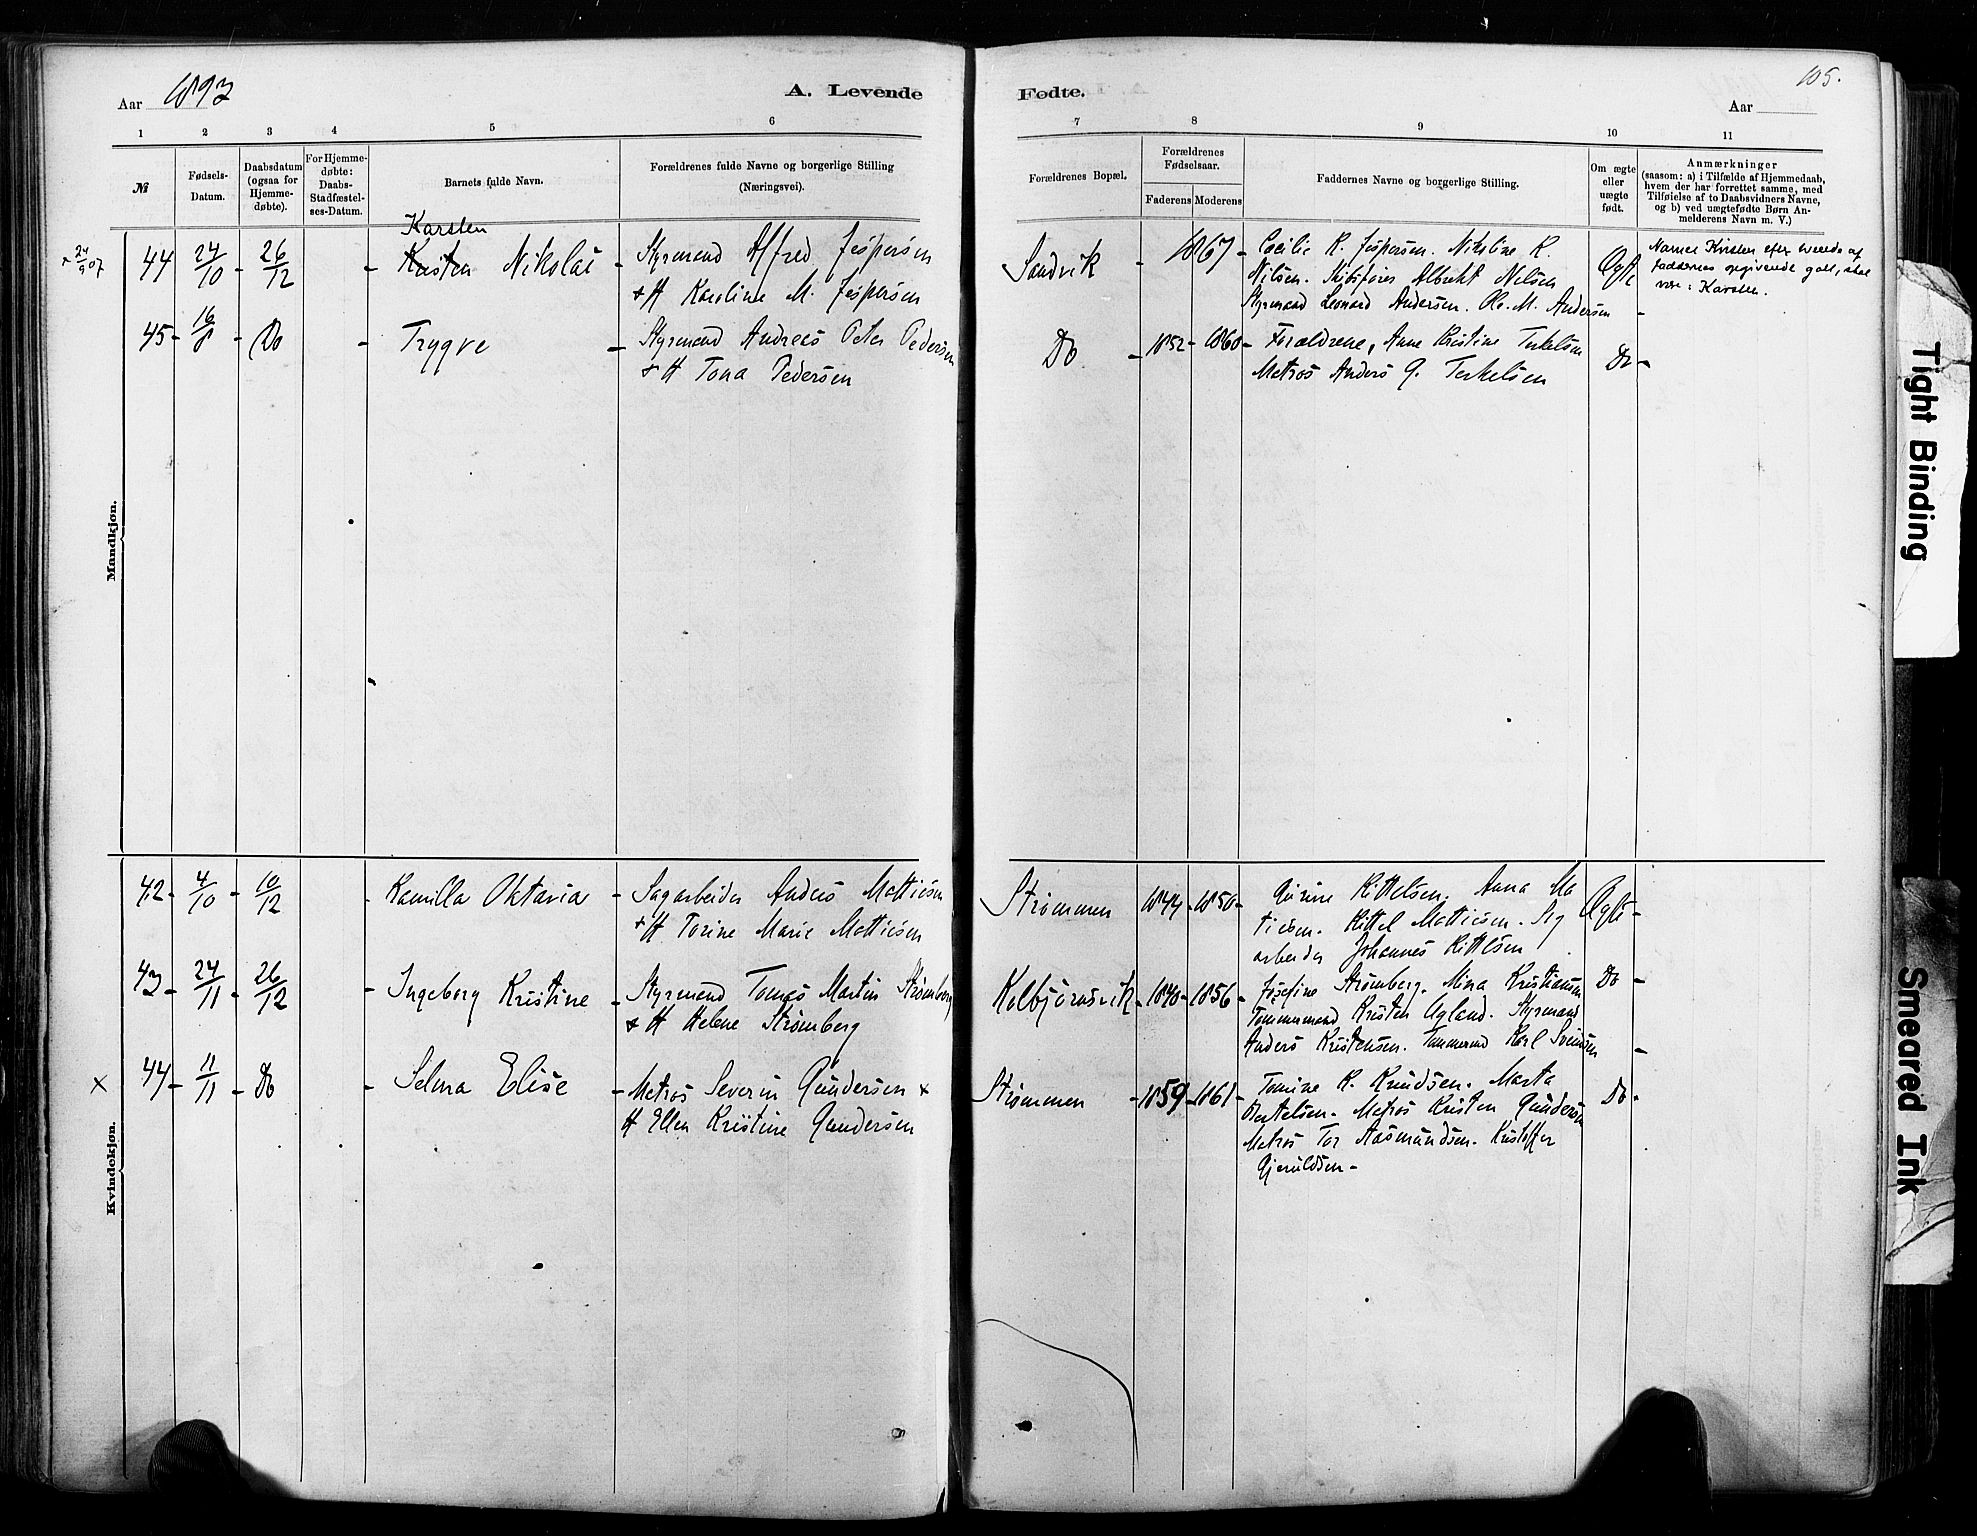 Aar 1893
A. Levende
Fødte.
105.
Aar
1 2 3 4 5 6 7 8 9 10 11
№
Fødsels-
Datum.
Daabsdatum
(ogsaa for
Hjemme-
døbte).
For Hjemme-
døbte:
Daabs-
Stadfæstel-
ses-Datum.
Barnets fulde Navn.
Forældrenes fulde Navne og borgerlige Stilling
(Næringsvei).
Forældrenes Bopæl.
Forældrenes
Fødselsaar.
Faderens Moderens
Faddernes Navne og borgerlige Stilling.
Om ægte
eller
uægte
født.
Anmærkninger
(saasom: a) i Tilfælde af Hjemmedaab,
hvem der har forrettet samme, med
Tilføielse af to Daabsvidners Navne,
og b) ved uægtefødte Børn An-
melderens Navn m. V.)
Mandkjøn.
× 24/9 07
44 24/10 - 26/12
Karsten
- Kristen Nikolai -
Styrmand Alfred Jespersen
+ H Karoline M. Jespersen
Sandvik - 1867 -
Cecilie K. Jespersen. Nikoline K.
Nilsen. Skibsfører Albrekt Nilsen
Styrmand Leonard Andersen. Ol. M. Andersen
Ægte
Navnet Kirsten efter
faddernes opgivende skal
være: Karsten.
45 - 16/8 - Do - Trygve -
Styrmand Andreas Peter Pedersen
+ H Tona Pedersen
Do - 1852 - 1860 -
Forældrene, Anne Kristine Terkelsen
Matros Anders G. Terkelsen
Do -
Kvindekjøn.
42 - 4/10 - 10/12 - Kamilla Oktavia -
Sagarbeider Anders Mattiesen
+ H Torine Marie Mattiesen
Strømmen 1844 - 1850 -
Gurine Kittelsen. Anna Ma
tiesen. Kittel Mattiesen.
arbeider Johannes Kittelsen
Ægte -
43 - 24/11 - 26/12 - Ingeborg Kristine -
Styrmand Tomas Martin Strømberg
+ H Helene Strømberg
Kolbjørnsvik - 1840 - 1856 -
Josefine Strømberg. Mina Kristiansen
Tømmermand Kristen Ugland. Styrmand
Anders Kristensen. Tømmermd Karl Svendsen
Do -
× 44 - 11/11 - Do - Selma Elise -
Matros Severin Gundersen +
H Ellen Kristine Gundersen
Strømmen - 1859 - 1861 -
Tomine K. Knudsen. Marta
Bertelsen. Matros Kristen Gundersen
Matros Tor Aasmundsen. Kristoffer
Gjeruldsen -
Do -
Tight Binding
Smeared Ink